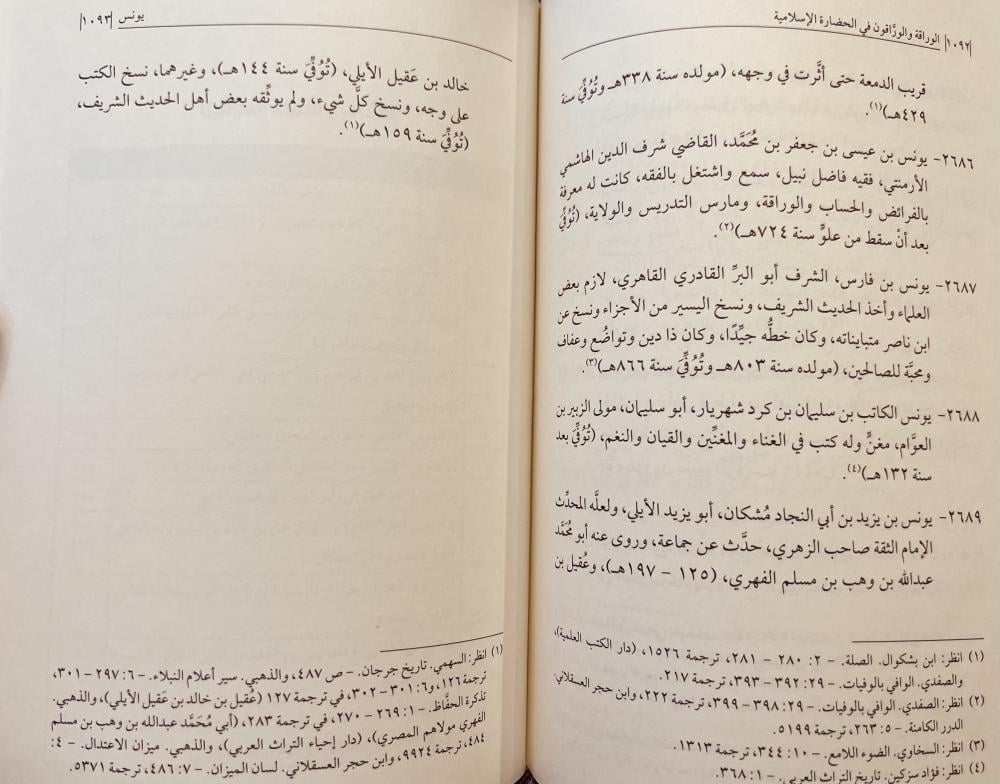 |١٠٩٢| الوراقة والورَّاقون في الحضارة الإسلامية
قريب الدمعة حتى أثَّرت في وجهه، (مولده سنة ٣٣٨هـ وتُوُفِّيَ سنة
٤٢٩هـ)(١).
٢٦٨٦- يونس بن عيسى بن جعفر بن مُحَمَّد، القاضي شرف الدين الهاشمي
الأرمنتي، فقيه فاضل نبيل، سمع واشتغل بالفقه، كانت له معرفة
بالفرائض والحساب والوراقة، ومارس التدريس والولاية، (تُوُفِّيَ
بعد أنْ سقط من علوٍّ سنة ٧٢٤هـ)(٢).
٢٦٨٧- يونس بن فارس، الشرف أبو البرِّ القادري القاهري، لازم بعض
العلماء وأخذ الحديث الشريف، ونسخ اليسير من الأجزاء ونسخ عن
ابن ناصر متبايناته، وكان خطُّه جيِّدًا، وكان ذا دين وتواضُع وعفاف
ومحبَّة للصالحين، (مولده سنة ٨٠٣هـ وتُوُفِّيَ سنة ٨٦٦هـ)(٣).
٢٦٨٨- يونس الكاتب بن سليمان بن كرد شهريار، أبو سليمان، مولى الزبير بن
العوَّام، مغنٍّ وله كتب في الغناء والمغنِّين والقيان والنغم، (تُوُفِّيَ بعد
سنة ١٣٢هـ)(٤).
٢٦٨٩- يونس بن يزيد بن أبي النجاد مُشكان، أبو يزيد الأيلي، ولعلَّه المحدِّث
الإمام الثقة صاحب الزهري، حدَّث عن جماعة، وروى عنه أبو مُحَمَّد
عبدالله بن وهب بن مسلم الفهري، (١٢٥ - ١٩٧هـ)، وعُقيل بن
(١) انظر: ابن بشكوال. الصلة. - ٢: ٢٨٠ - ٢٨١، ترجمة ١٥٢٦، (دار الكتب العلمية)،
والصفدي. الوافي بالوفيات. - ٢٩: ٣٩٢ - ٣٩٣، ترجمة ٢١٧.
(٢) انظر: الصفدي. الوافي بالوفيات. - ٢٩: ٣٩٨ - ٣٩٩، ترجمة ٢٢٢، وابن حجر العسقلاني.
الدرر الكامنة. - ٥: ٢٦٣، ترجمة ٥١٩٩.
(٣) انظر: السخاوي. الضوء اللامع. - ١٠: ٣٤٤، ترجمة ١٣١٣.
(٤) انظر: فؤاد سزكين. تاريخ التراث العربي. - ١: ٣٦٨.
يونس |١٠٩٣|
خالد بن عَقيل الأيلي، (تُوُفِّيَ سنة ١٤٤هـ)، وغيرهما، نسخ الكتب
على وجه، ونسخ كلَّ شيء، ولم يوثِّقه بعض أهل الحديث الشريف،
(تُوُفِّيَ سنة ١٥٩هـ)(١).
(١) انظر: السهمي. تاريخ جرجان. - ص ٤٨٧، والذهبي. سير أعلام النبلاء. - ٦: ٢٩٧ - ٣٠١،
ترجمة ١٢٦، و٦: ٣٠١ - ٣٠٢، في ترجمة ١٢٧ (عُقيل بن خالد بن عَقيل الأيلي)، والذهبي.
تذكرة الحفَّاظ. - ١: ٢٦٩ - ٢٧٠، في ترجمة ٢٨٣، (أبي مُحَمَّد عبدالله بن وهب بن مسلم
الفهري مولاهم المصري)، (دار إحياء التراث العربي)، والذهبي. ميزان الاعتدال. - ٤:
٤٨٤، ترجمة ٩٩٢٤، وابن حجر العسقلاني. لسان الميزان. - ٧: ٤٨٦، ترجمة ٥٣٧١.